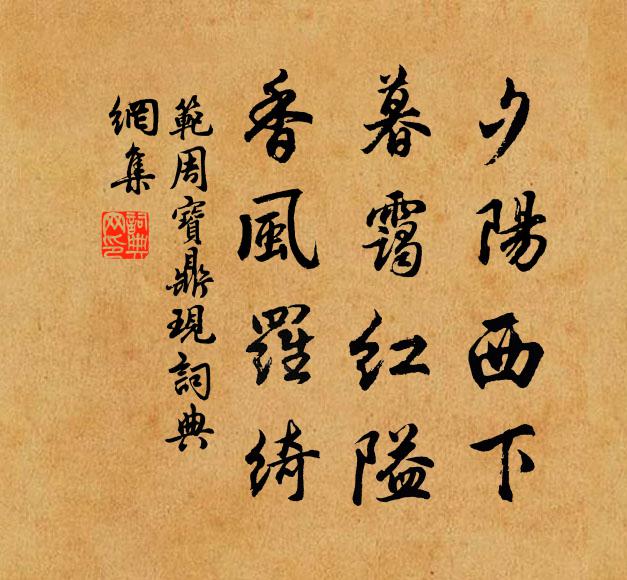 夕陽西下
暮靄紅隘
香風羅綺
範周寶鼎現詞典
網集
詞典
网印